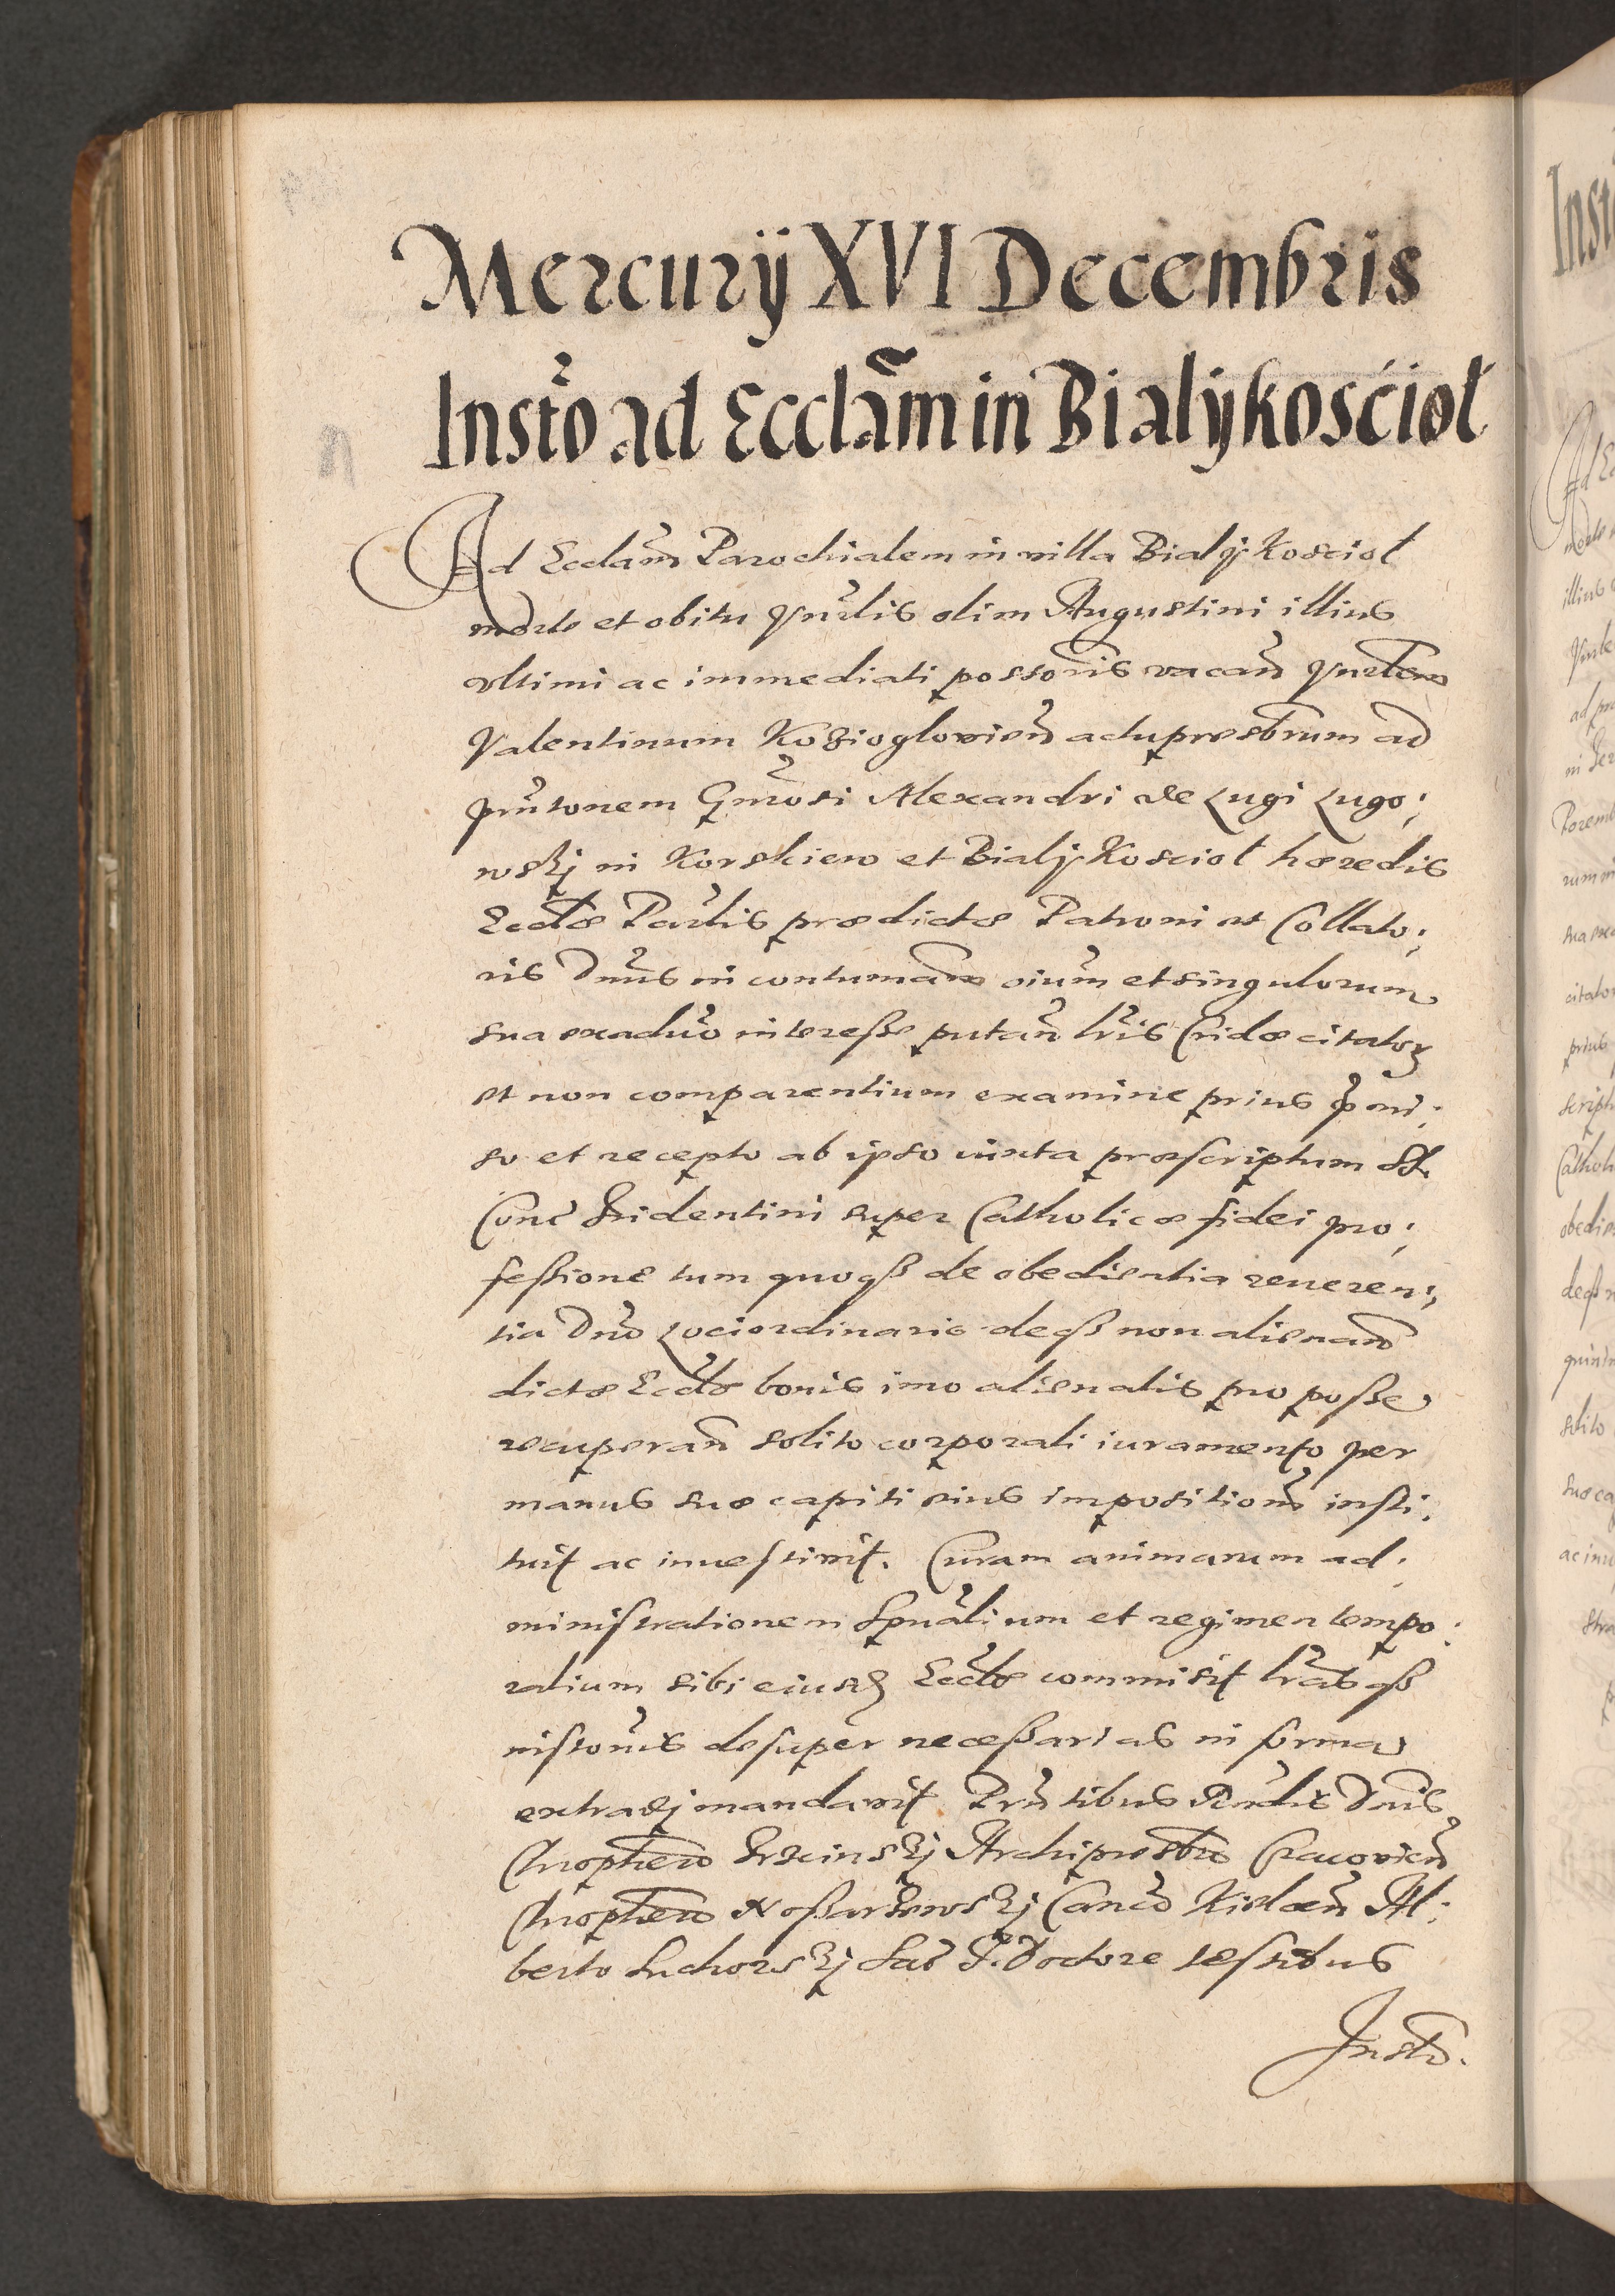 Mercurÿ XVI Decembris
Insto͂ ad Eccla͂m in Bialÿkościoł
Ad Eccla͂m Parochialem in villa Bialÿ Kościoł
morte et obitu Vnrlis olim Augustini illius
vltimi ac immediati possoris vacan͂ Vnrlem
Valentinum Koziegłovien͂ actu presbrum ad
prn͂tonem Gnrosi Alexandri de Ługi Ługo;
wskj in Korzkiew et Bialÿ Kościoł hæredis
Ecclæ Parlis prædictæ Patroni et Collato;
ris Dnus in contumam oium et singulorum
sua ex aduo interesse putan͂ lris Cridæ citatoꝝ
et non comparentium examine prius p͂mi;
so et recepto ab ipso iuxta præscriptum St.
Conc͂ Tridentini super Catholicæ fidei pro;
fessione tum quoqꝫ de obedientia reueren;
tia Dno Lociordinario deqꝫ non alienan͂
dictæ Ecclæ bonis imo alienatis pro posse
recuperan͂ solito corporali iuramento per
manus suæ capiti eius impositiom insti;
tuit ac inuestivit. Curam animarum ad;
ministrationem Spualium et regimen tempo;
ralium sibi eiusdꝫ Ecclæ commisit lrasqꝫ
instonis desuper necessarias in forma
extradj mandavit Prn͂tibus Rndis Dnis
Chrophero Trzcinskj Archiprestro Cracovien͂
Chrophero Noskarzewskj Canco Kielcen͂ Al;
berto Suchorskj Sac͂ T. Doctore testibus
Insto͂.